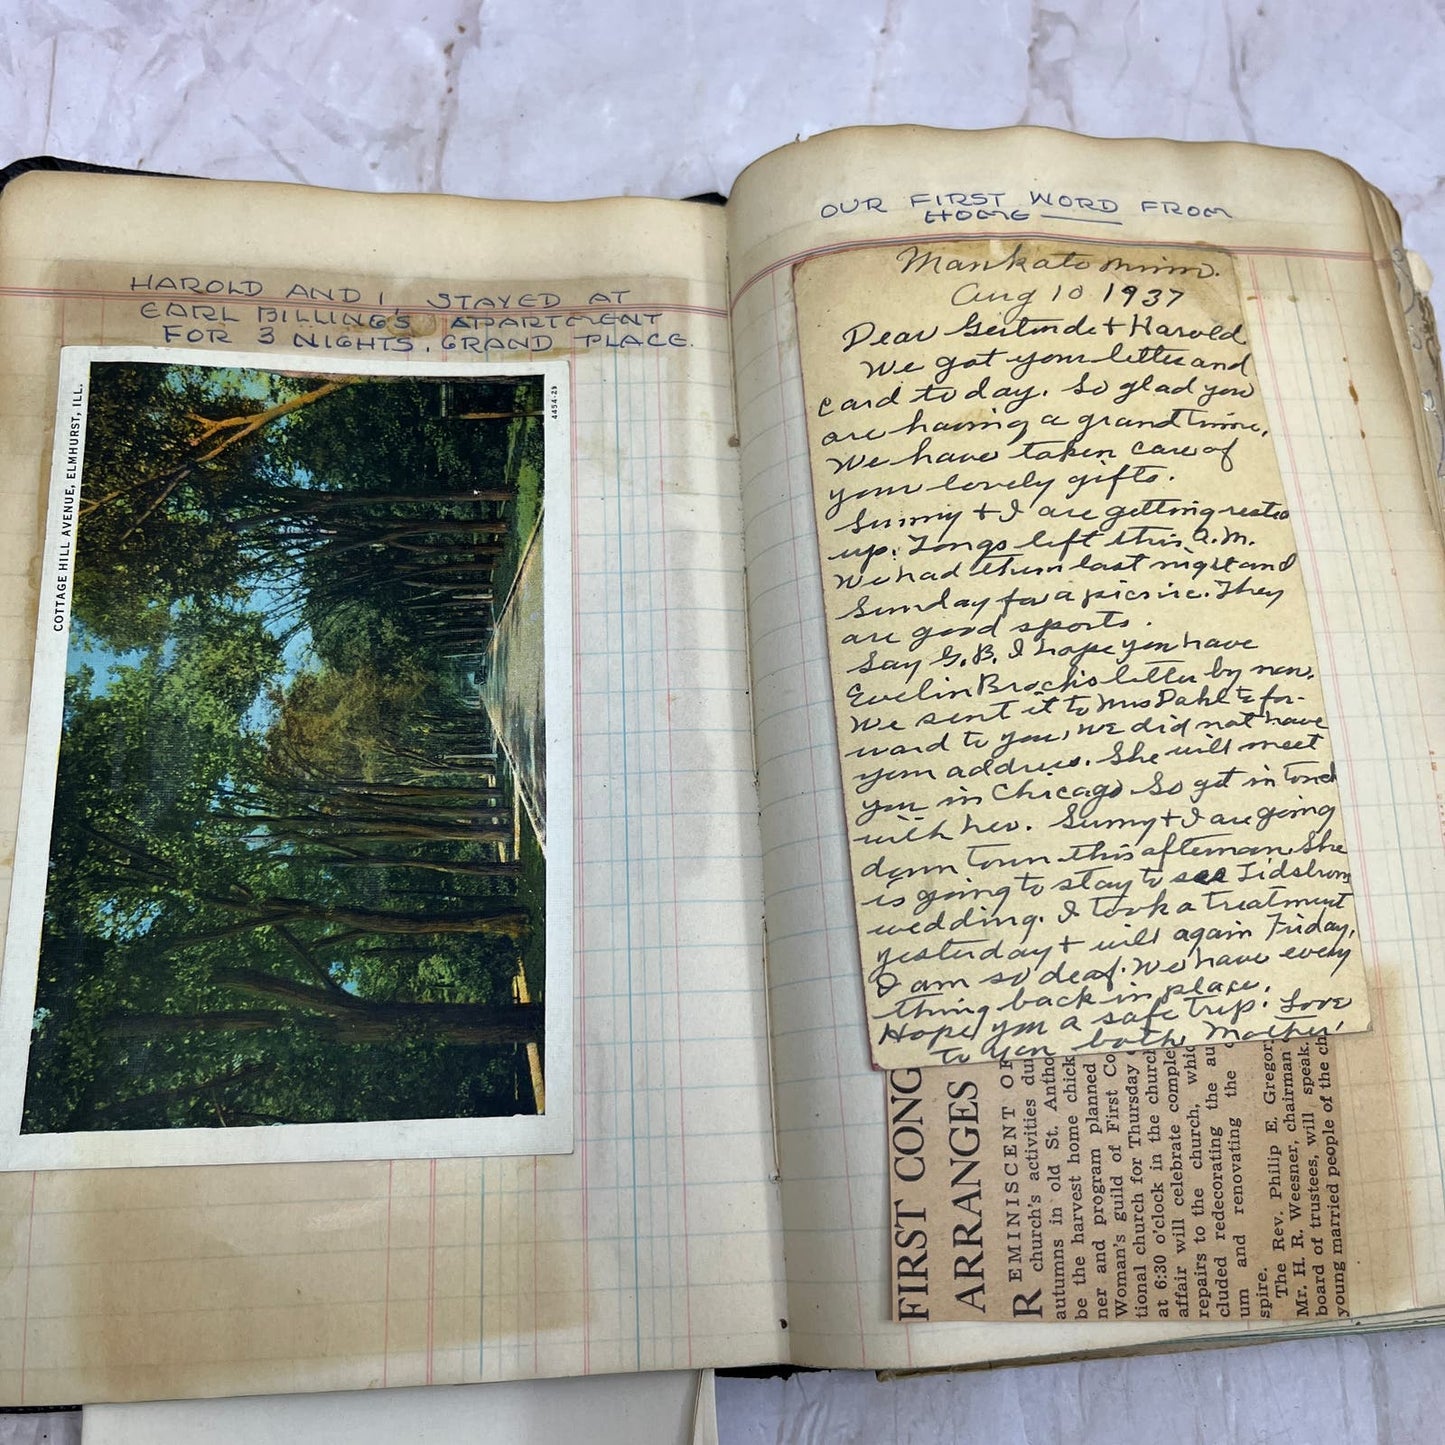 HAROLD AND I, STAYED AT
EARL BILLING'S APARTMENT
FOR 3 NIGHTS. GRAND PLACE.
COTTAGE HILL AVENUE, ELMHURST, ILL.
4454-29
OUR FIRST WORD FROM
HOME
Mankato Minn.
Aug 10 1937
Dear Gertrude + Harold
We got your letter and
card to day. So glad you
are having a grand time,
We have taken care of
your lovely gifts.
Sunny + I are getting rested
up. Longs left this A.M.
We had them last night and
Sunday for a picnic. They
are good sports.
Say G.B. I hope you have
Evelin Brock's letter by now.
We sent it to Mrs Dahl to for-
ward to you, we did not have
your address. She will meet
you in Chicago So get in touch
with her. Sunny + I are going
down town this afternoon. She
is going to stay to see Lidstrom
wedding. I took a treatment
yesterday + will again Friday,
I am so deaf. We have every
thing back in place.
Hope you a safe trip. Love
to you both Mother.
FIRST CONG
ARRANGES
REMINISCENT OF
church's activities du
autumns in old St. Antho
be the harvest home chick
ner and program planned
Woman's guild of First Co
tional church for Thursday
at 6:30 o'clock in the church
affair will celebrate comple
repairs to the church, whic
cluded redecorating the au
um and renovating the
spire.
The Rev. Philip E. Gregor
Mr. H. R. Weesner, chairman
board of trustees, will speak.
young married people of the ch